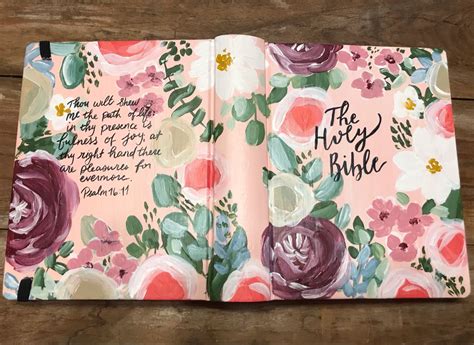 Thou wilt shew
me the path of life:
in thy presence is
fulness of joy; at
thy right hand there
are pleasures for
evermore.
Psalm 16:11
The
Holy
Bible